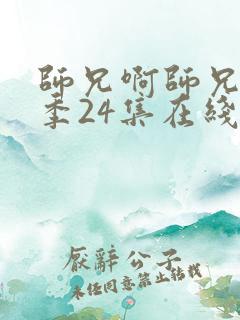 師兄啊師兄
季24集在綫
厭辭公子
未经同意禁止转载